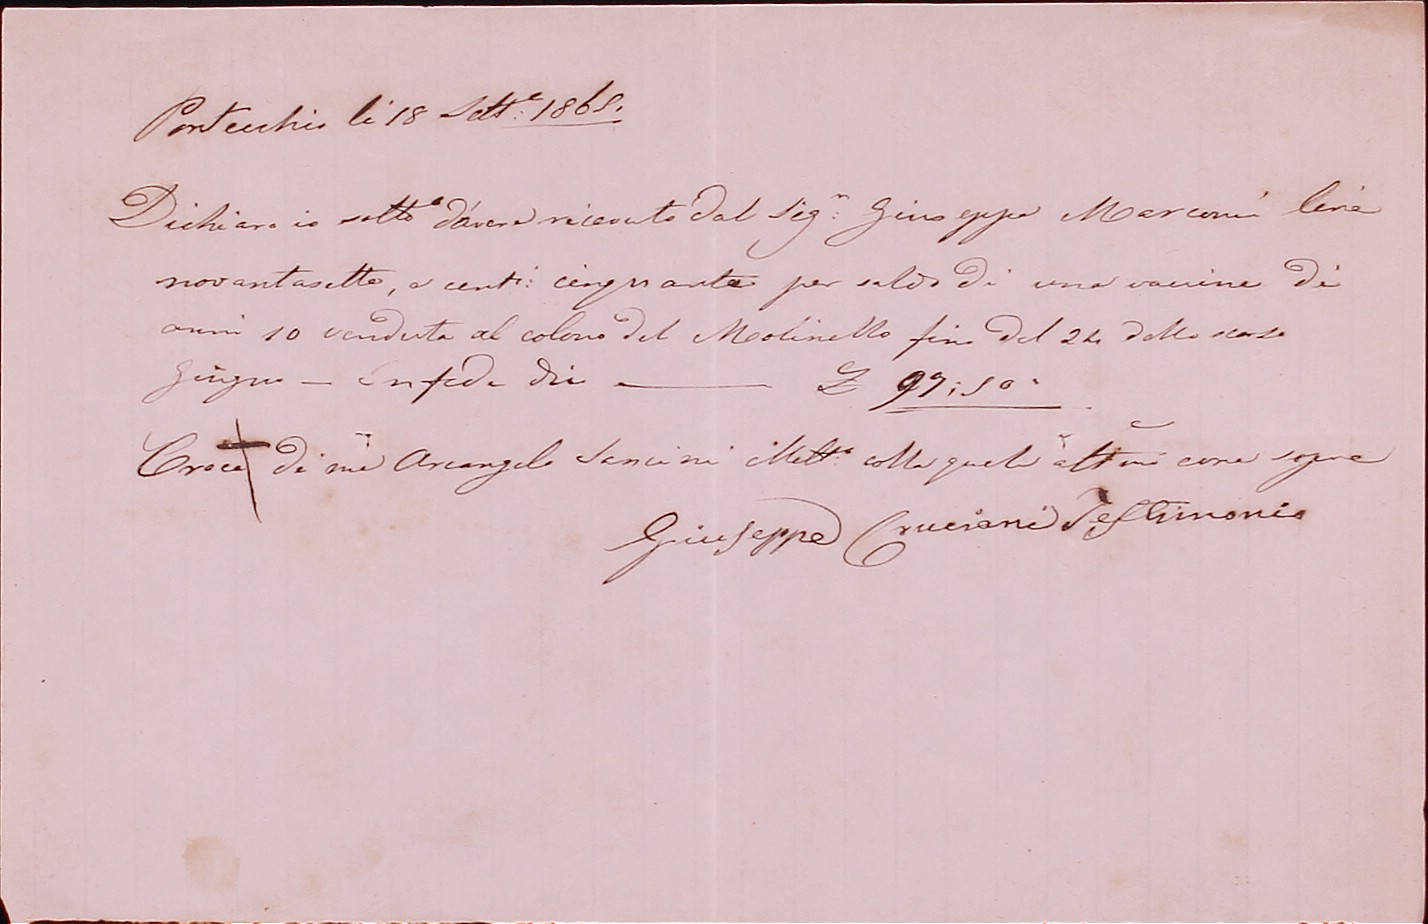 Pontecchio li 18 Sett.e 1865.
Dichiaro io sotto.o d'avere ricevuto dal Sig.r Giuseppe Marconi lire
novantasette, e cent: cinquanta per saldo di una vaccina di
anni 10 venduta al colono del Molinello fino del 24 dello scorso
Giugno — In fede dico ——— £ 97:50
Croce + di me Arcangelo Sancini Illett.o colla quale affermo come sopra
Giuseppe Cruciani Testimonio